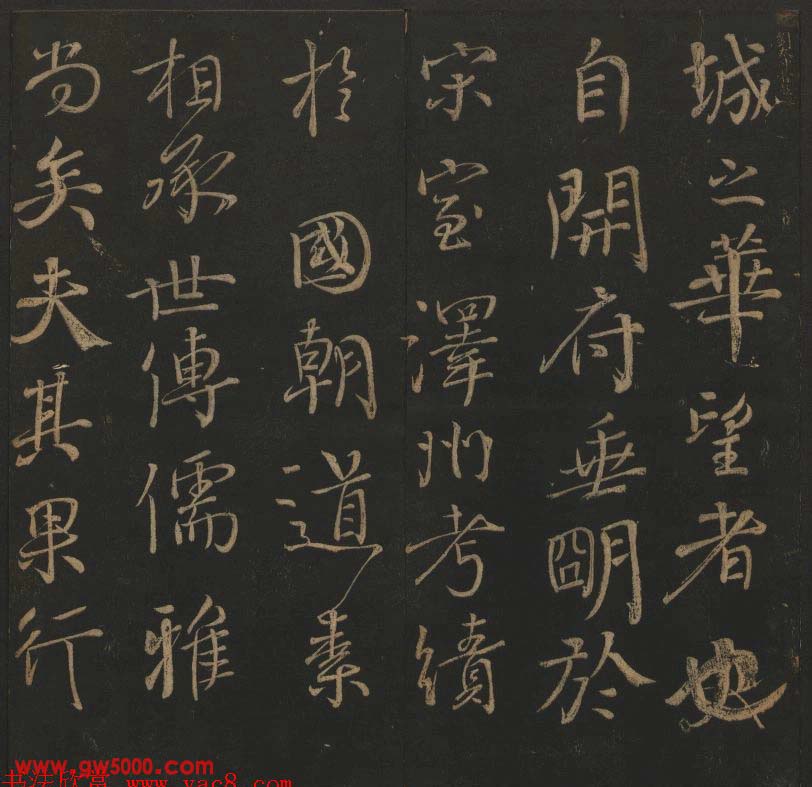 城之華望者也
自開府垂明於
宋室澤州考績
於國朝道素
相承世傳儒雅
尚矣夫其果行
www.gw5000.com
书法欣赏 www.yac8.com